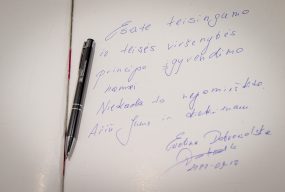 Esate teisingumo
ir teisės viršenybės
principo įgyvendinimo
namai.
Niekada to nepamirškite.
Ačiū Jums ir
Evelina Dobrovolska